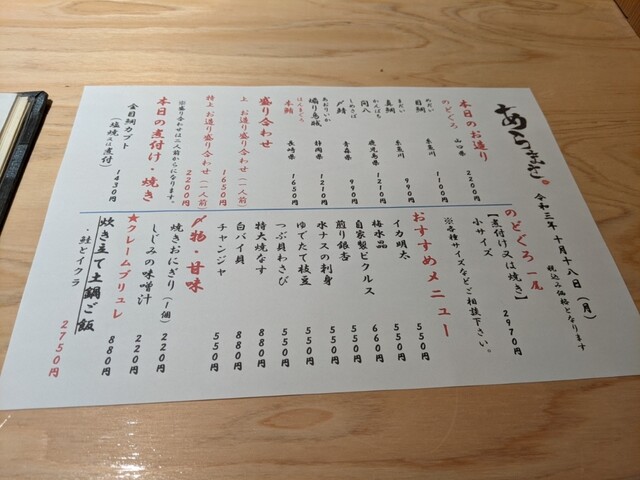 あらまき
令和三年 十月十八日（月）
税込み価格となります
本日のお造り
のどぐろ 山口県 2200円
めだい
目鯛 糸魚川 1100円
まだい
真鯛 糸魚川 990円
かんぱち
間八 鹿児島県 1210円
しめさば
〆鯖 青森県 990円
あおりいか
煽り烏賊 静岡県 1210円
ほんまぐろ
本鮪 長崎県 1650円
盛り合わせ
上 お造り盛り合わせ（一人前） 1650円
特上 お造り盛り合わせ（一人前） 2200円
※盛り合わせは二人前からになります。
本日の煮付け・焼き
金目鯛カブト
（塩焼又は煮付） 1430円
のどぐろ 一尾
【煮付け又は焼き】
小サイズ 2970円
※各種サイズなどご相談下さい。
おすすめメニュー
イカ明太 550円
梅水晶 550円
自家製ピクルス 660円
煎り銀杏 550円
水ナスの刺身 550円
ゆでたて枝豆 550円
つぶ貝わさび 550円
特大焼なす 880円
白バイ貝 880円
チャンジャ 550円
〆物・甘味
焼きおにぎり（1個） 220円
しじみの味噌汁 220円
★クレームブリュレ 880円
炊き立て土鍋ご飯
・鮭とイクラ 2750円